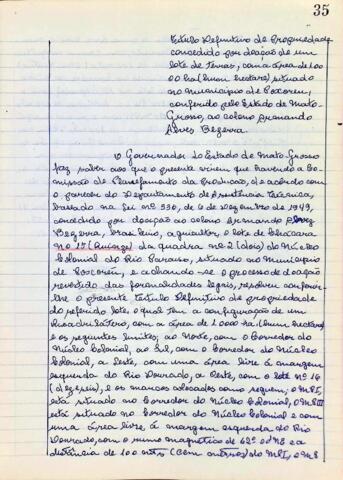 35
Titulo Definitivo de Propriedade
concedido por doação de um
lote de terras, com a área de 1.00
00 ha (hum hectare) situado
no município de Poxoreu,
conferido pelo Estado de Mato
Grosso, ao colono Armando
Alves Bezerra.
O Governador do Estado de Mato Grosso
faz saber aos que o presente virem que havendo a Co-
missão de Planejamento da Produção, de acordo com
o parecer do Departamento de assistência técnica,
baseado na Lei nº 330, de 9 de Dezembro de 1949,
concedido por doação ao colono Armando Alves
Bezerra, brasileiro, agricultor, o lote de chácara
no 15 (Quinze) da quadra no 2 (dois) do Núcleo
Colonial do Rio Paraiso, situado no Município
de Poxoreu, e achando-se o processo de doação
revestido das formalidades legais, resolveu conferir-
lhe o presente Titulo Definitivo de propriedade
do referido lote, o qual tem a configuração de um
Quadrilatero, com a área de 1.0000 ha (hum hectare)
e os seguintes limites; ao Norte, com o Corredor do
Núcleo Colonial, ao Sul, com o Corredor do Núcleo
Colonial, a Leste, com uma área livre à margem
esquerda do Rio Dourado, a Oeste, com o lote nº 16
(dezeseis), e os marcos colocados como seguem; o MI,
está situado no Corredor do Núcleo Colonial, o MII
está situado no Corredor do Núcleo Colonial e com
uma área livre à margem esquerda do Rio
Dourado, com o rumo magnetico de 62º e a
distância de 100 mts (cem metros) do MI, o M